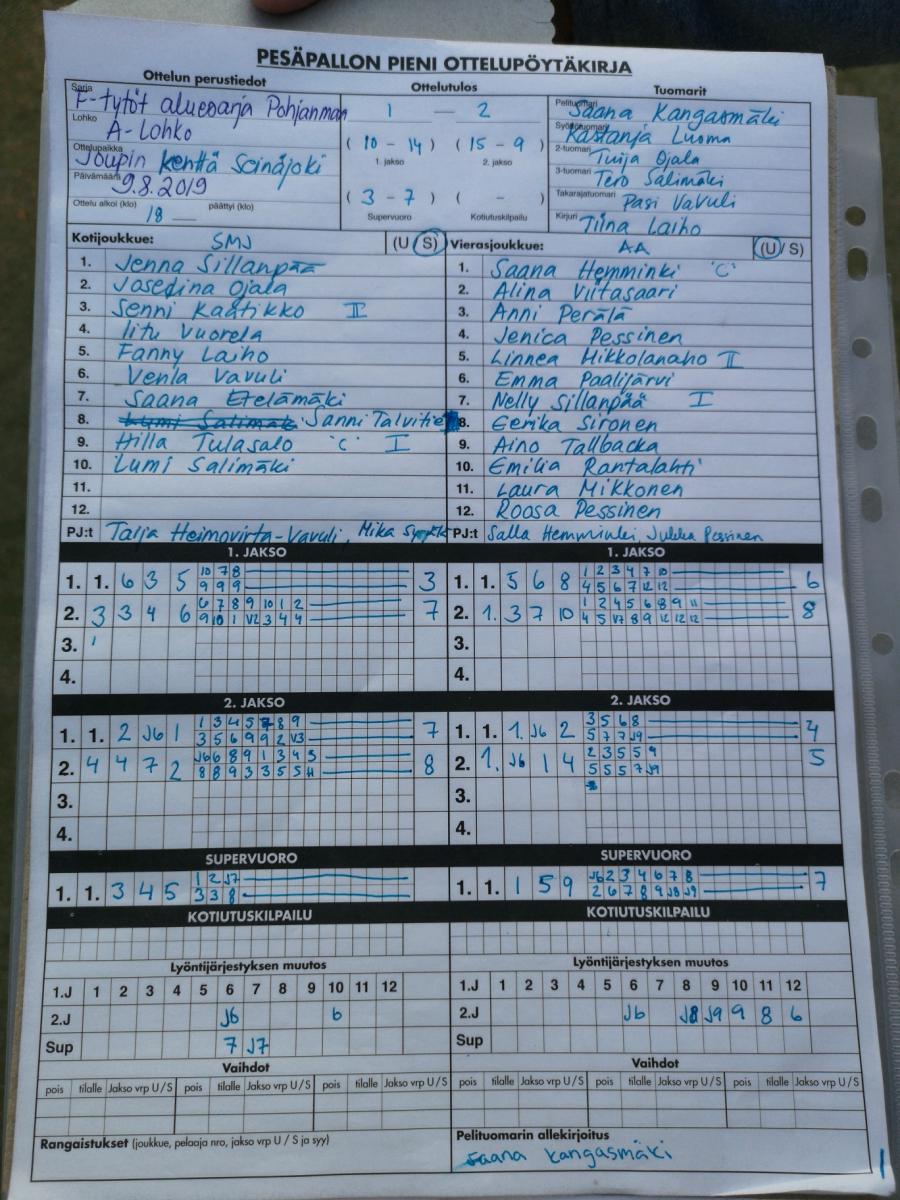 PESÄPALLON PIENI OTTELUPÖYTÄKIRJA
Ottelun perustiedot
Ottelutulos
Tuomarit
Sarja F-tytöt aluesarja Pohjanmaa
Lohko A-Lohko
Ottelupaikka Joupin kenttä Seinäjoki
Päivämäärä 9.8.2019
Ottelu alkoi (klo) 18 päättyi (klo)
1 — 2
( 10 - 14 ) ( 15 - 9 )
1. jakso 2. jakso
( 3 - 7 ) ( - )
Supervuoro Kotiutuskilpailu
Pelituomari Saana Kangasmäki
Syöttötuomari Luoma
2-tuomari Tuija Ojala
3-tuomari Tero Salimäki
Takarajatuomari Pasi Vavuli
Kirjuri Tiina Laiho
Kotijoukkue: SMJ (U / S)
1. Jenna Sillanpää
2. Josefina Ojala
3. Senni Kaatikko II
4. Iitu Vuorela
5. Fanny Laiho
6. Venla Vavuli
7. Saana Etelämäki
8. Lumi Salimäk Sanni Talvitie
9. Hilla Tulasalo 'C' I
10. Lumi Salimäki
11.
12.
PJ:t Tarja Heimovirta-Vavuli, Mika
Vierasjoukkue: AA (U / S)
1. Saana Hemminki 'C'
2. Alina Viitasaari
3. Anni Perälä
4. Jenica Pessinen
5. Linnea Mikkolanaho II
6. Emma Paalijärvi
7. Nelly Sillanpää I
8. Eerika Sironen
9. Aino Tallbacka
10. Emilia Rantalahti
11. Laura Mikkonen
12. Roosa Pessinen
PJ:t Salla Hemminki, Jukka Pessinen
1. JAKSO
1. 1. 6 3 5 10 7 8 3
9 9 9
2. 3 3 4 6 6 7 8 9 10 1 2 7
9 10 1 V2 3 4 4
3.
4.
1. JAKSO
1. 1. 5 6 8 1 2 3 4 7 10 6
4 5 6 7 12 12
2. 1. 3 7 10 1 2 4 5 6 8 9 11 8
4 5 V7 8 9 12 12 12
3.
4.
2. JAKSO
1. 1. 2 J6 1 1 3 4 5 7 8 9 7
3 5 6 9 9 2 V3
2. 4 4 7 2 J6 6 8 9 1 3 4 5 8
8 8 9 3 3 5 5 H
3.
4.
2. JAKSO
1. 1. 1. J6 2 3 5 6 8 4
5 7 7 J9
2. 1. J6 1 4 2 3 5 5 9 5
5 5 5 7 J9
3.
4.
SUPERVUORO
1. 1. 3 4 5 1 2 J7
3 3 8
SUPERVUORO
1. 1. 1 5 9 J6 2 3 4 6 7 8 7
2 6 7 8 9 J8 J9
KOTIUTUSKILPAILU
KOTIUTUSKILPAILU
Lyöntijärjestyksen muutos
1.J 1 2 3 4 5 6 7 8 9 10 11 12
2.J J6 6
Sup 7 J7
Lyöntijärjestyksen muutos
1.J 1 2 3 4 5 6 7 8 9 10 11 12
2.J J6 J8 J9 9 8 6
Sup
Vaihdot
pois tilalle Jakso vrp U / S pois tilalle Jakso vrp U / S pois tilalle Jakso vrp U / S
Vaihdot
pois tilalle Jakso vrp U / S pois tilalle Jakso vrp U / S pois tilalle Jakso vrp U / S
Rangaistukset (joukkue, pelaaja nro, jakso vrp U / S ja syy)
Pelituomarin allekirjoitus
Saana Kangasmäki